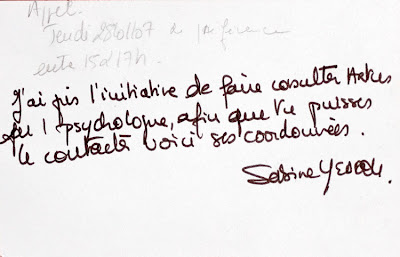 Appel.
Jeudi 25/01/07 à préférence
entre 15 à 17h.
J'ai pris l'initiative de faire consulter
par 1 psychologue, afin que tu puisses
le contacter voici ses coordonnées.
Sabine